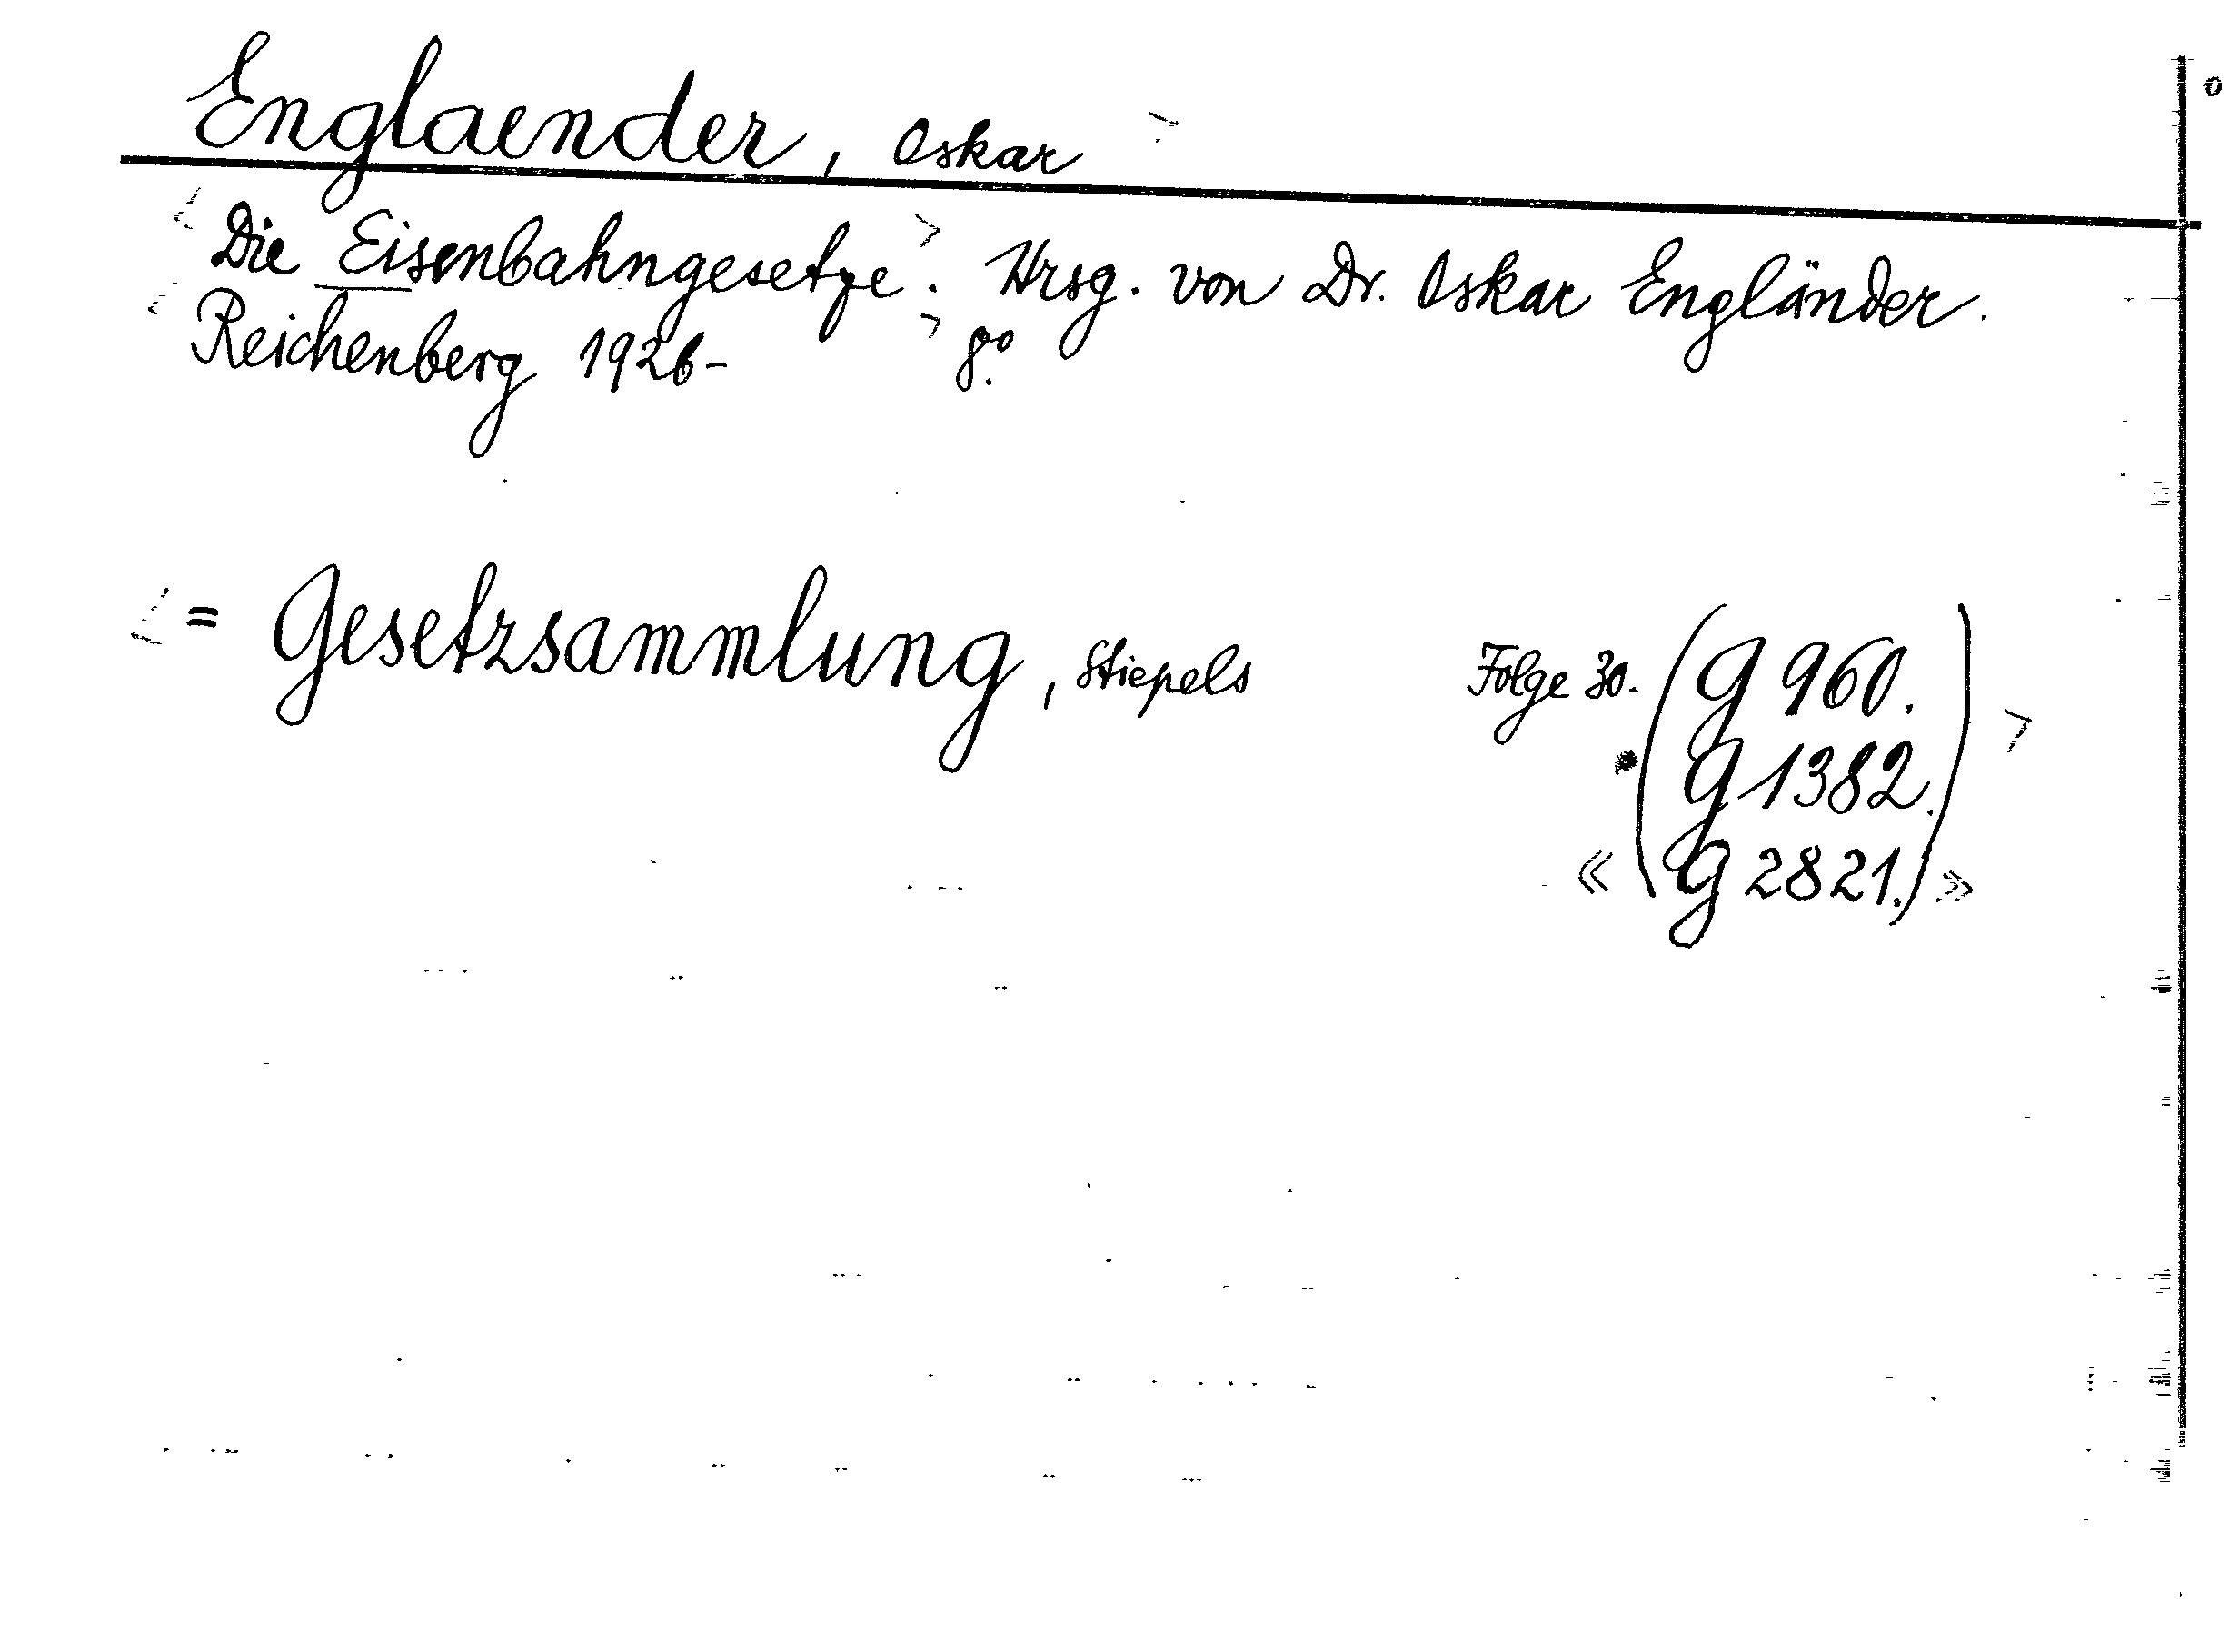 Englaender, Oskar
Die Eisenbahngesetze. Hrsg. von Dr. Oskar Engländer.
Reichenberg 1926- 8º.
= Gesetzsammlung, Stiepels Folge 30. (G 960.
G 1382.
G 2821.)